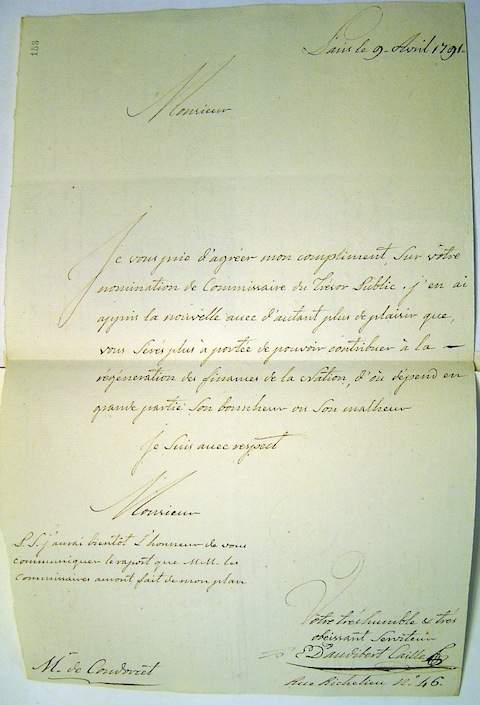 153
Paris le 9 Avril 1791.
Monsieur
Je vous prie d'agréer mon compliment sur vôtre
nomination de Commissaire du Trésor Public. j'en ai
appris la nouvelle avec d'autant plus de plaisir que,
vous serés plus à portée de pouvoir contribuer à la —
régéneration des finances de la Nation, d'où dépend en
grande partie son bonnheur ou son malheur
Je suis avec respect
Monsieur
P.S. j'aurai bientôt l'honneur de vous
communiquer le raport que M.M. les
Commissaires auront fait de mon plan
Votre très humble & très
obéissant Serviteur
P. Daudibert Caille
Mr. de Condorcet
Rue Richelieu No. 46.